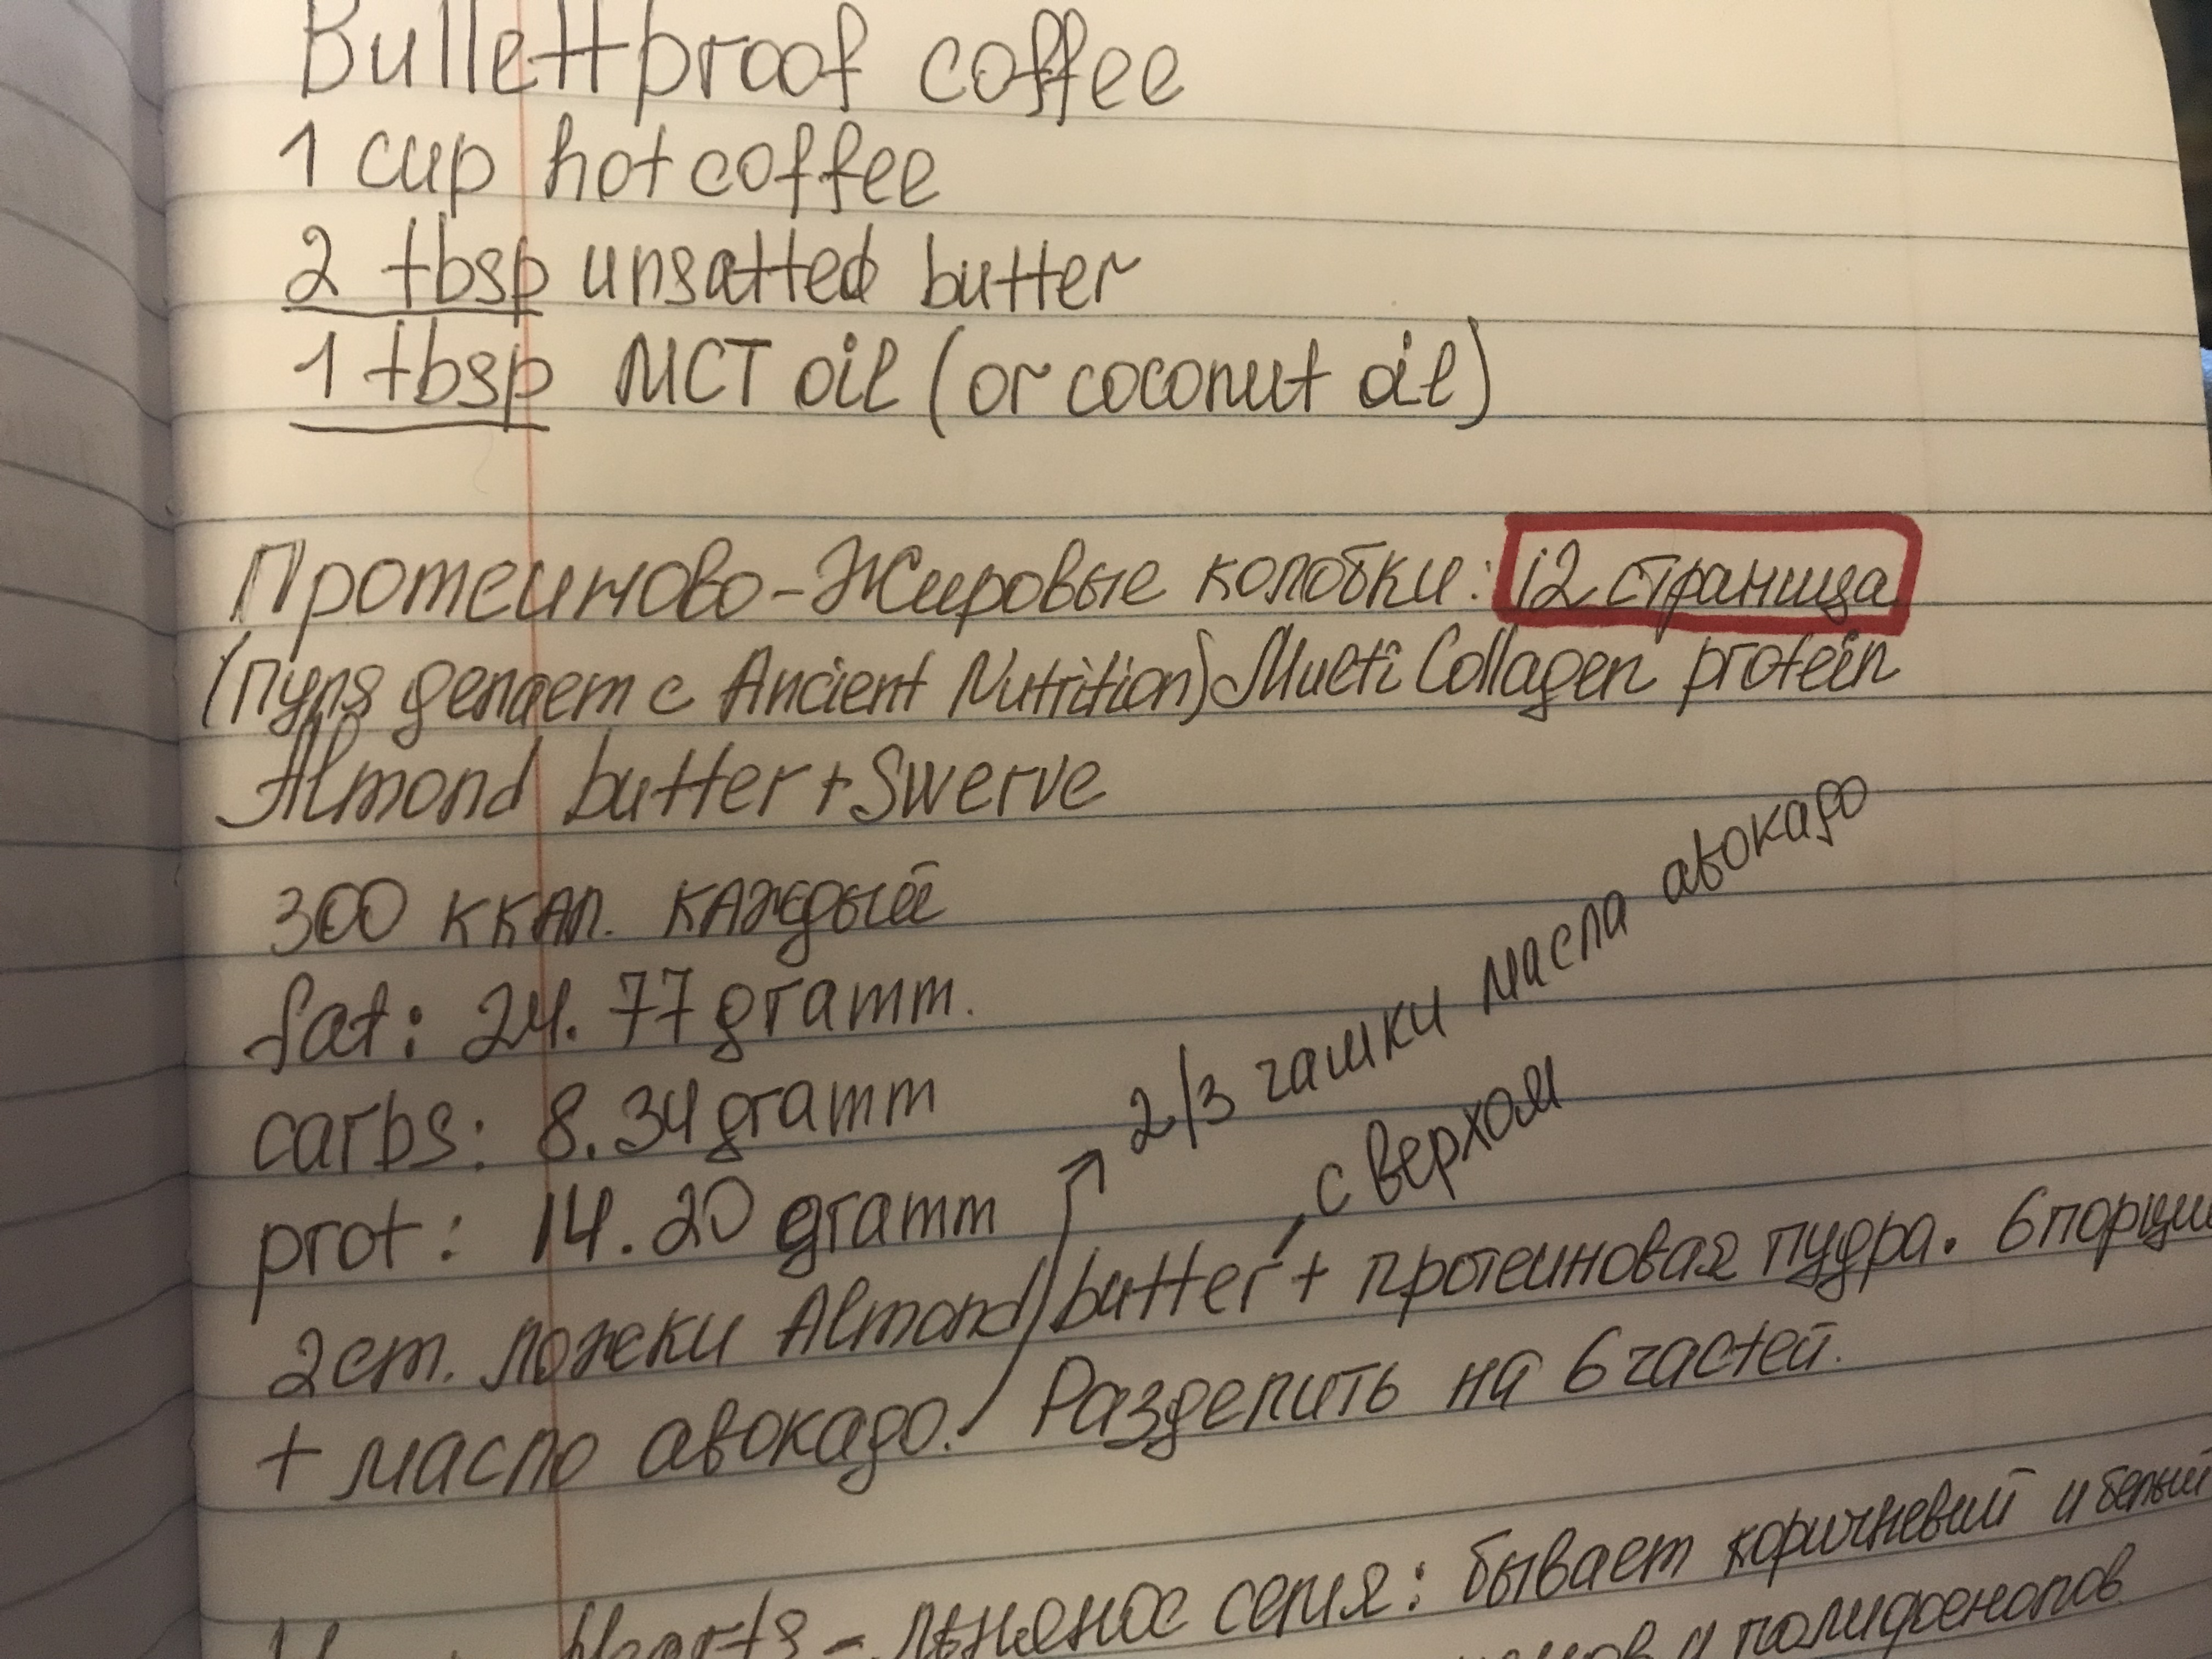 Bullettproof coffee
1 cup hot coffee
2 tbsp unsatted butter
1 tbsp MCT oil (or coconut oil)
Протеиново-Жировые колобки: 12 страница
(пуля делает с Ancient Nutrition) Multi Collagen protein
Almond butter + Swerve
300 ккал. каждый
fat: 24.77 gramm.
carbs: 8.34 gramm
prot: 14.20 gramm
2/3 чашки масла авокадо
с верхом
2 ст. ложки Almond butter + протеиновая пудра. 6 порции
+ масло авокадо. Разделить на 6 частей.
- льняное семя: бывает коричневый и белый
и полифенолов